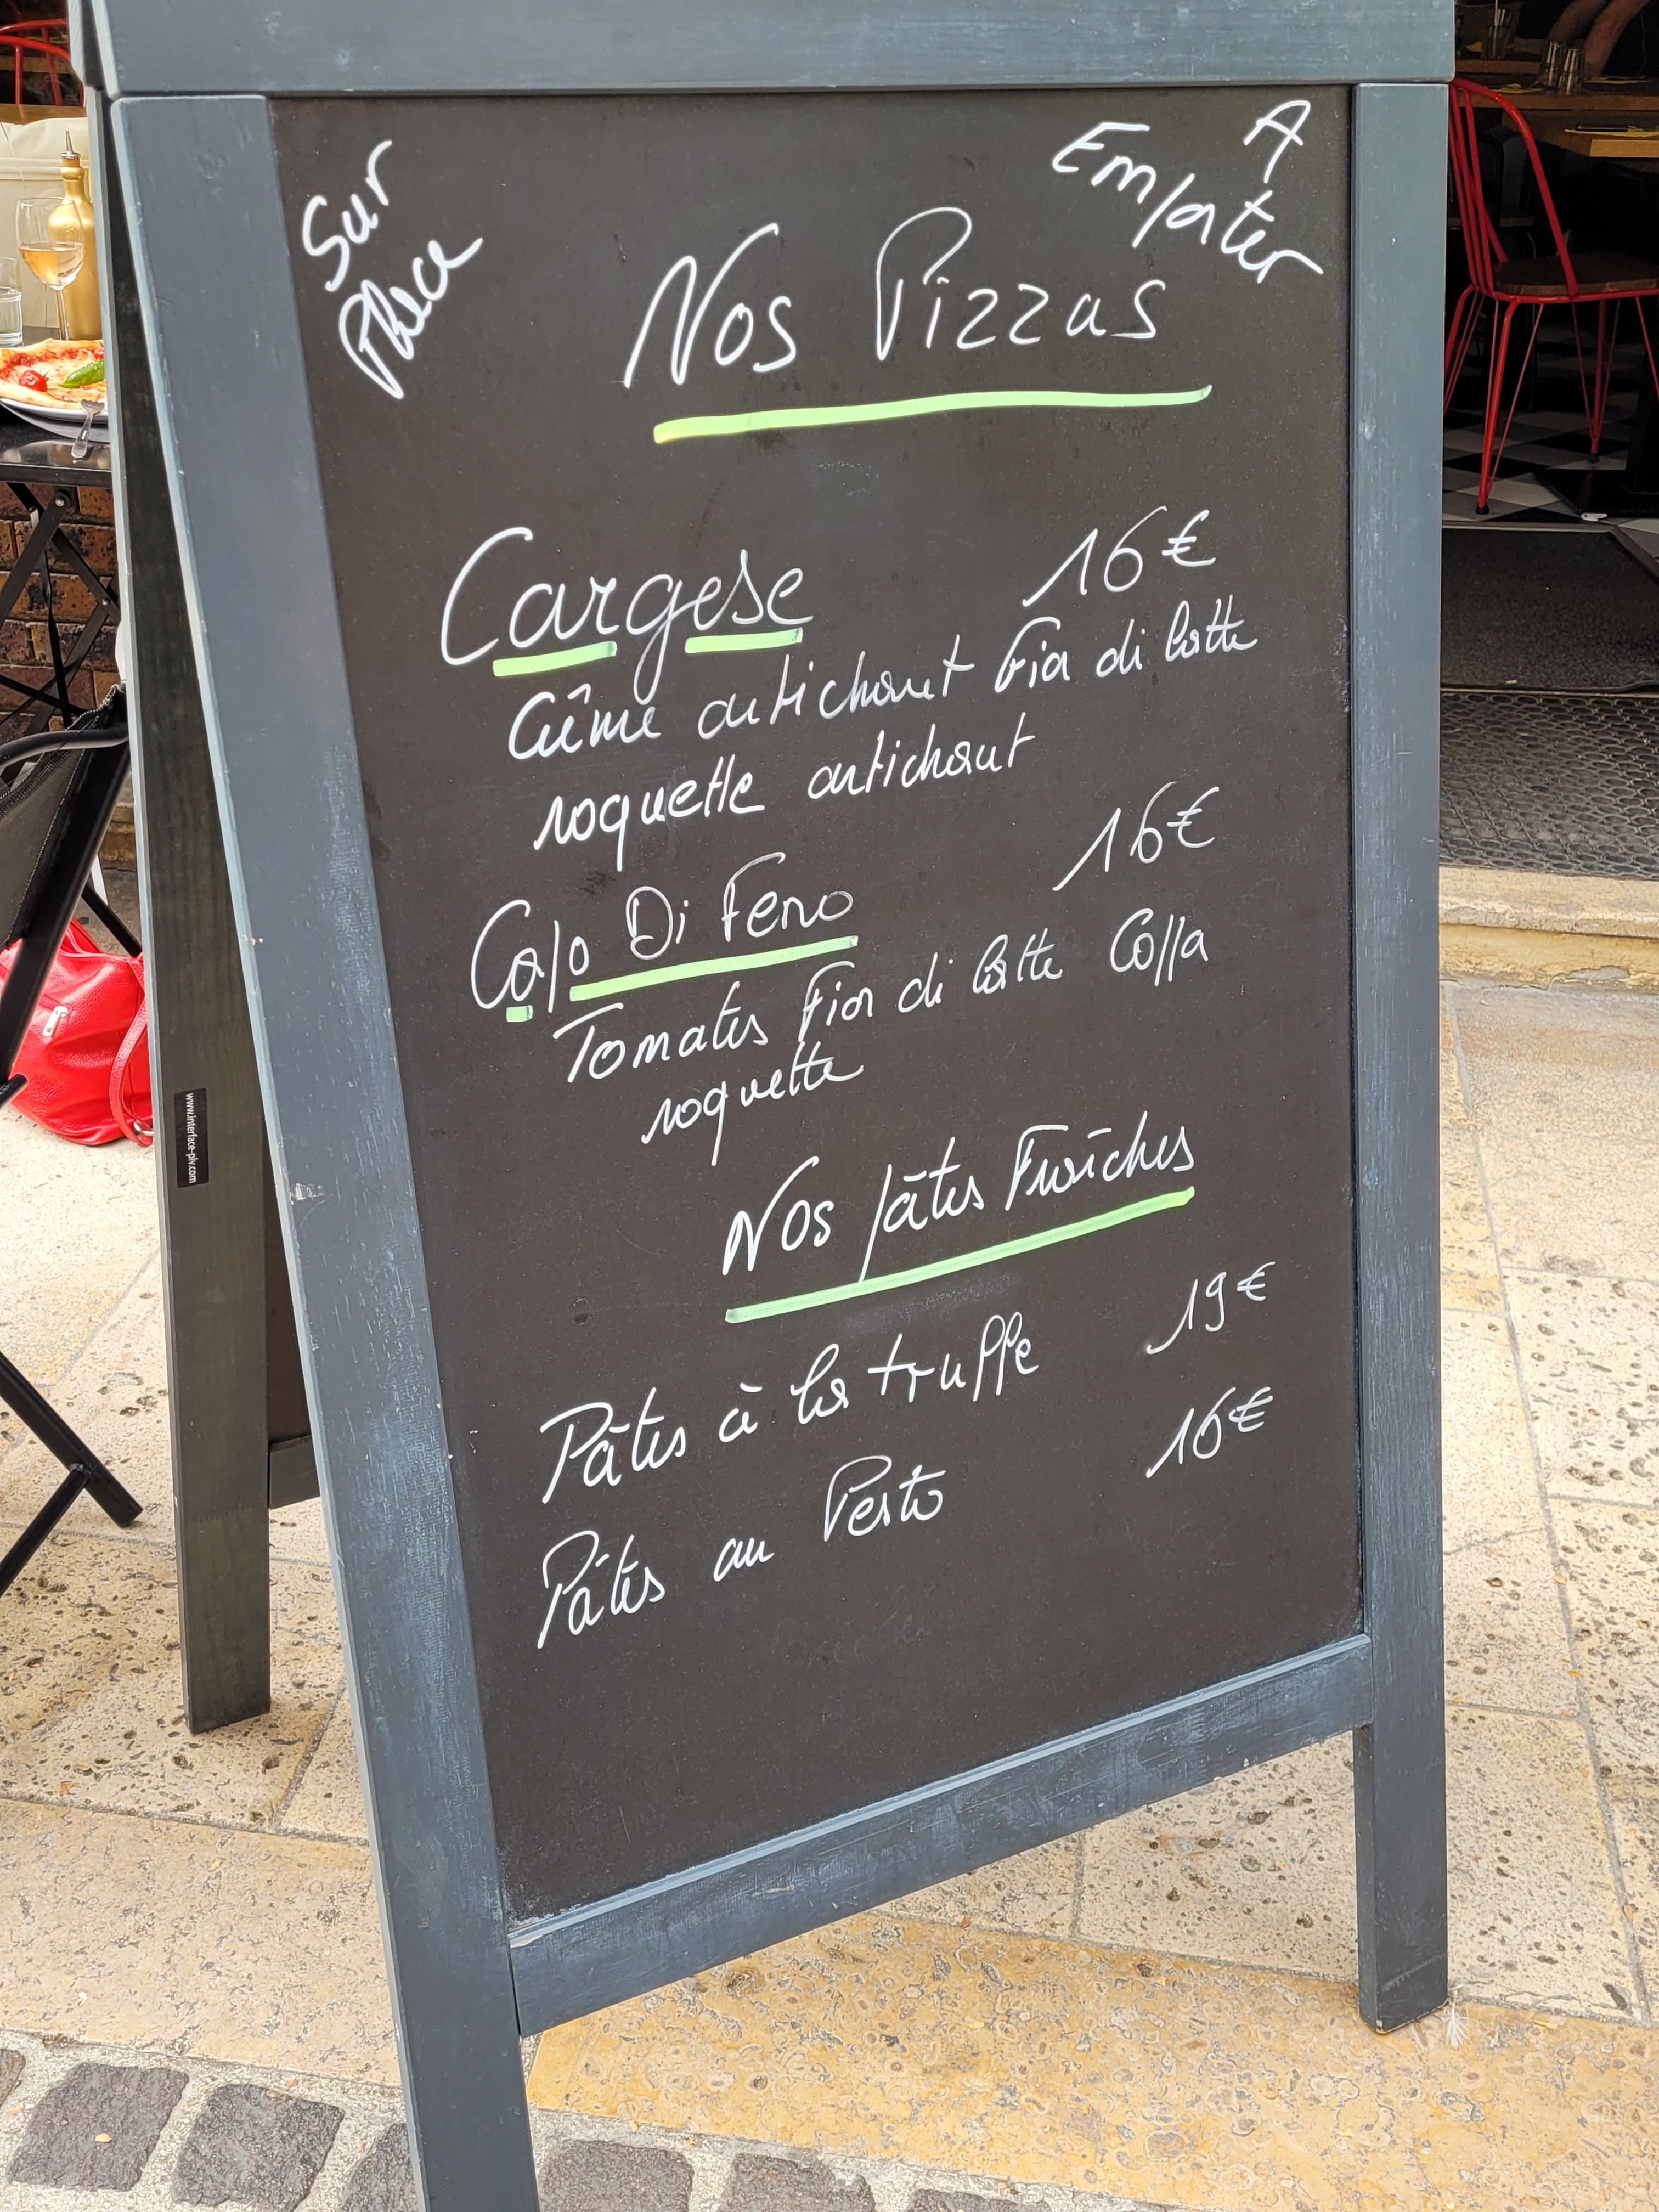 Sur
Place
A
Emporter
Nos Pizzas
Cargese 16€
Crême artichaut Fior di latte
roquette artichaut
Capo Di Feno 16€
Tomates Fior di latte Coppa
roquette
Nos pâtes Fraîches
Pâtes à la truffe 19€
Pâtes au Pesto 16€
www.interface-plv.com